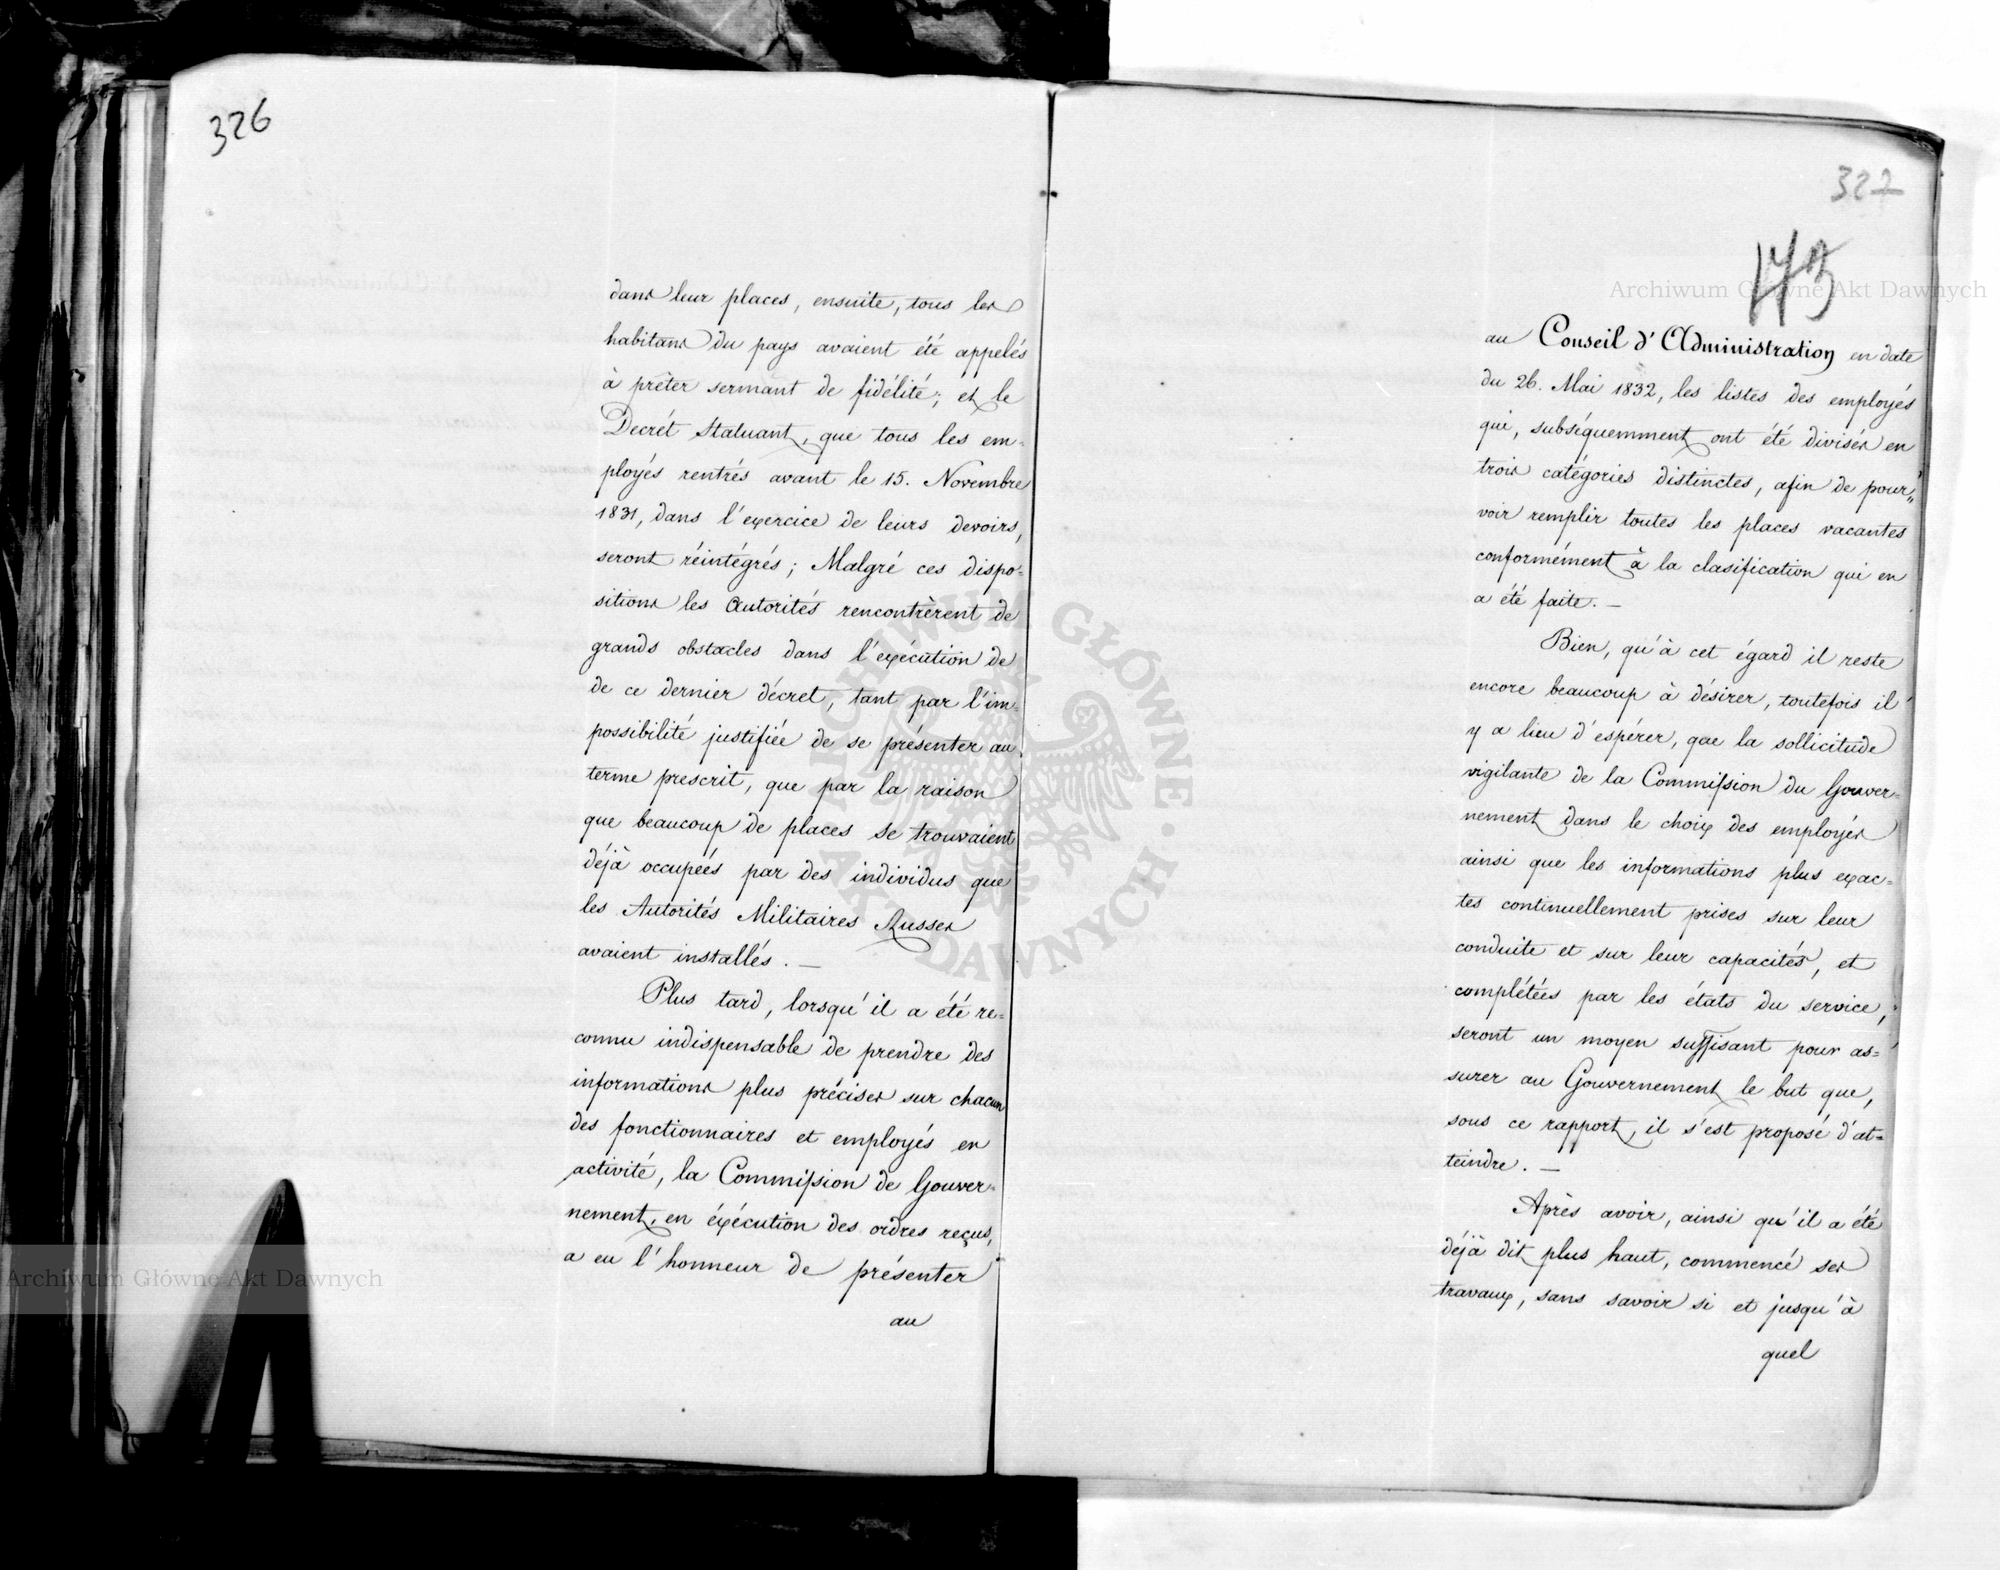 326
dans leur places, ensuite, tous les
habitans du pays avaient été appelés
à prêter sermant de fidélité; et le
Decrét Statuant, que tous les em-
ployés rentrés avant le 15. Novembre
1831, dans l'exercice de leurs devoirs,
seront réintégrés; Malgré ces dispo-
sitions les Autorités rencontrèrent de
grands obstacles dans l'exécution de
de ce dernier décret, tant par l'im-
possibilité justifiée de se présenter au
terme prescrit, que par la raison
que beaucoup de places se trouvaient
déjà occupées par des individus que
les Autorités Militaires Russes
avaient installés. —
Plus tard, lorsqu'il a été re-
connu indispensable de prendre des
informations plus précises sur chacun
des fonctionnaires et employés en
activité, la Commission de Gouver-
nement, en éxécution des ordres reçus,
a eu l'honneur de présenter
au
327
173
au Conseil d'Administration en date
du 26. Mai 1832, les listes des employés
qui, subséquemment ont été divisés en
trois catégories distinctes, afin de pour-
voir remplir toutes les places vacantes
conformément à la clasification qui en
a été faite. —
Bien, qu'à cet égard il reste
encore beaucoup à désirer, toutefois il
y a lieu d'espérer, que la sollicitude
vigilante de la Commission du Gouver-
nement dans le choix des employés
ainsi que les informations plus exac-
tes continuellement prises sur leur
conduite et sur leur capacités, et
complétées par les états du service,
seront un moyen suffisant pour as-
surer au Gouvernement le but que,
sous ce rapport, il s'est proposé d'at-
teindre. —
Après avoir, ainsi qu'il a été
déjà dit plus haut, commencé ses
travaux, sans savoir si et jusqu'à
quel
Archiwum Główne Akt Dawnych
Archiwum Główne Akt Dawnych
ARCHIWUM GŁÓWNE · AKT DAWNYCH ·